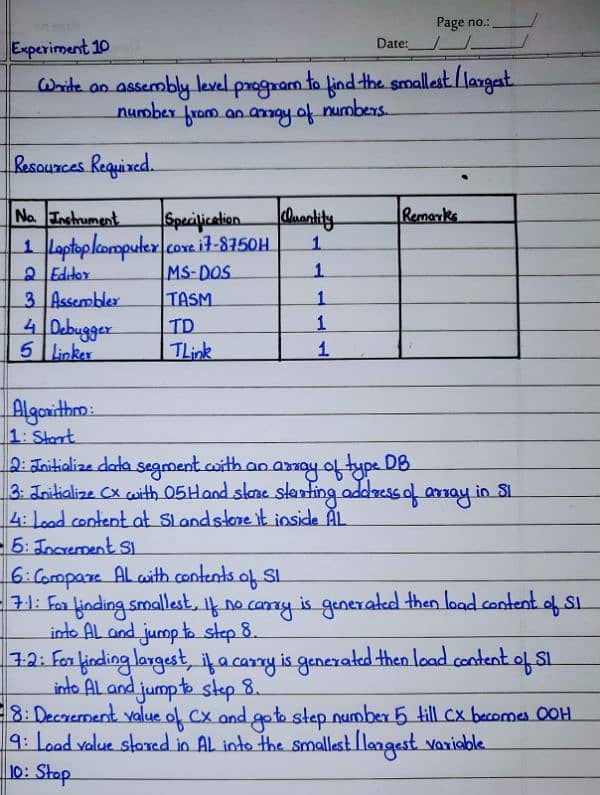 Page no.:
Experiment 10
Date:
Write an assembly level program to find the smallest / largest
number from an array of numbers.
Resources Required.
No. Instrument Specification Quantity Remarks
1 Laptop/computer core i7-8750H 1
2 Editor MS-DOS 1
3 Assembler TASM 1
4 Debugger TD 1
5 Linker TLink 1
Algorithm:
1: Start
2: Initialize data segment with an array of type DB
3: Initialize CX with 05H and store starting address of array in SI
4: Load content at SI and store it inside AL
5: Increment SI
6: Compare AL with contents of SI
7.1: For finding smallest, If no carry is generated then load content of SI
into AL and jump to step 8.
7.2: For finding largest, if a carry is generated then load content of SI
into AL and jump to step 8.
8: Decrement value of CX and go to step number 5 till CX becomes 00H
9: Load value stored in AL into the smallest / largest variable
10: Stop